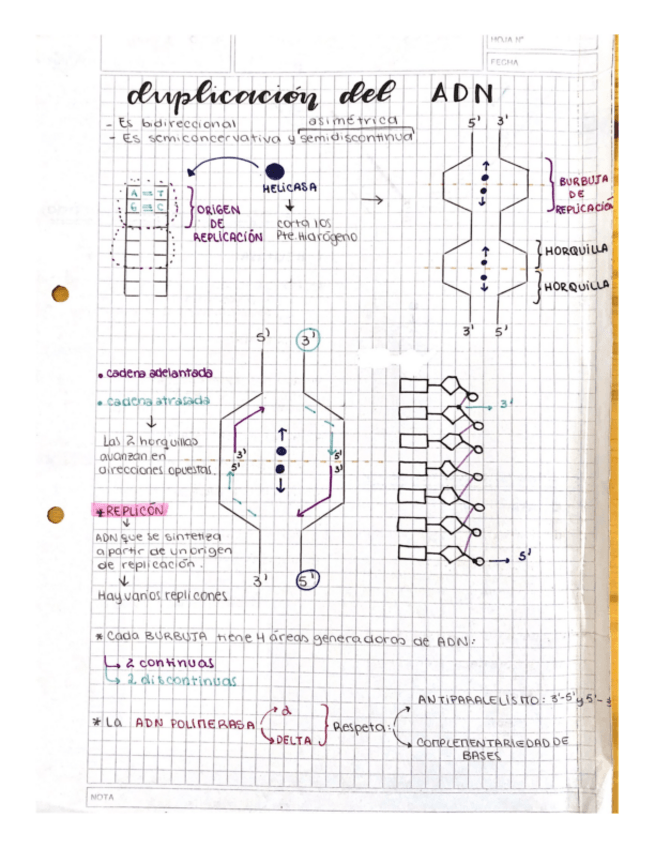 HOJA Nº
FECHA
duplicación del ADN
- Es bidireccional
asimétrica
- Es semiconcervativa y semidiscontinua
5' 3'
A = T
G ≡ C
HELICASA
corta los
Pte. Hidrógeno
ORIGEN
DE
REPLICACIÓN
BURBUJA
DE
REPLICACIÓN
HORQUILLA
HORQUILLA
3' 5'
5' 3'
• cadena adelantada
• cadena atrasada
Las 2 horquillas
avanzan en
direcciones opuestas.
3' 5'
5' 3'
3' 5'
3'
5'
* REPLICÓN
ADN que se sintetiza
a partir de un origen
de replicación.
Hay varios replicones
* Cada BURBUJA tiene 4 áreas generadoras de ADN:
2 continuas
2 discontinuas
* La ADN POLIMERASA
α
DELTA
Respeta:
ANTIPARALELISMO: 3'-5' y 5'-
COMPLEMENTARIEDAD DE
BASES
NOTA